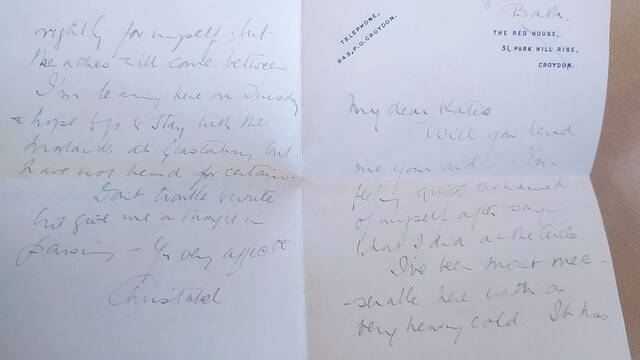 Bath.
TELEPHONE,
843, P.O. CROYDON.
THE RED HOUSE,
51, PARK HILL RISE,
CROYDON.
My dear Katie
Will you lend
me your aid. I'm
feeling quite ashamed
of myself after saying
what I did at the Circle
I've been most mise-
-rable here with a
very heavy cold. It has
rightly for myself: but
the aches will come between
I'm leaving here on Tuesday
& hope to go & stay with the
at Glastonbury but
have not heard for certain.
Don't trouble to write
but give me a thought in
passing - Yr very affecte
Christabel.